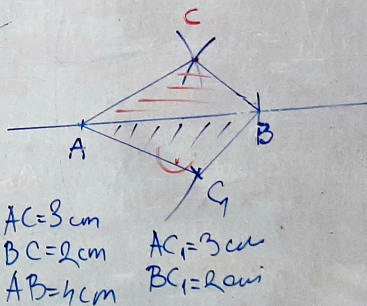 C
A
B
C₁
AC=3cm
BC=2cm
AB=4cm
AC₁=3cm
BC₁=2cm